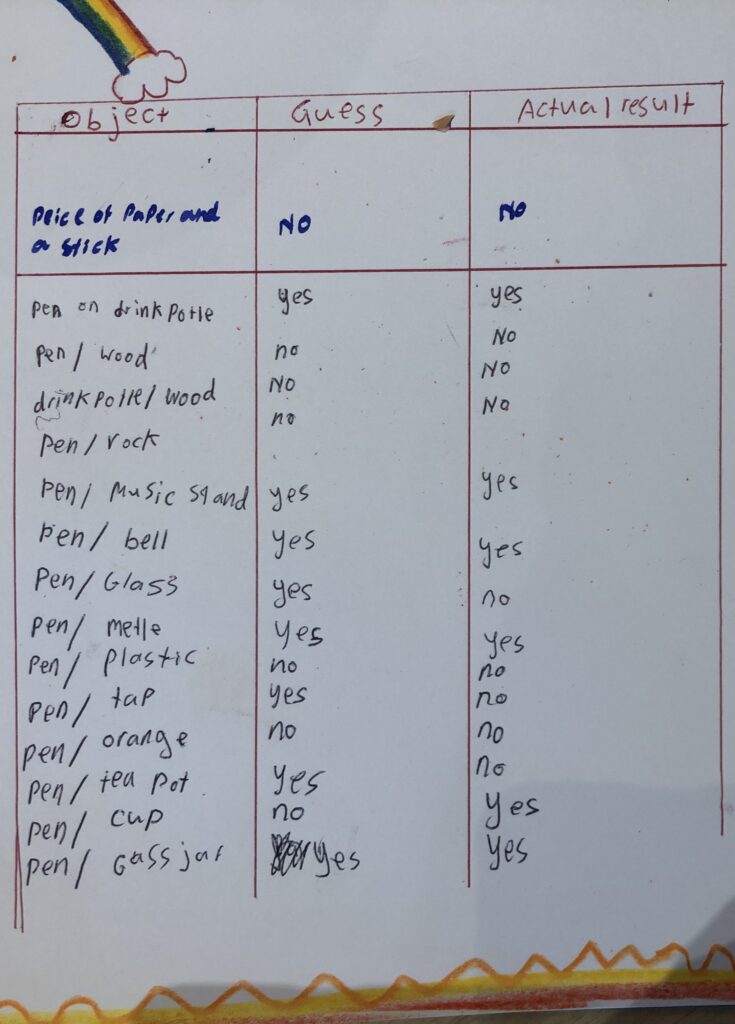 Object Guess Actual result
peice of paper and
a stick NO NO
pen on drink potle yes yes
pen / wood no NO
drink potle / wood NO NO
pen / rock no NO
pen / music stand yes yes
pen / bell yes yes
pen / Glass yes no
pen / metle yes yes
pen / plastic no no
pen / tap yes no
pen / orange no no
pen / tea pot yes no
pen / cup no yes
pen / Gass jar yes yes